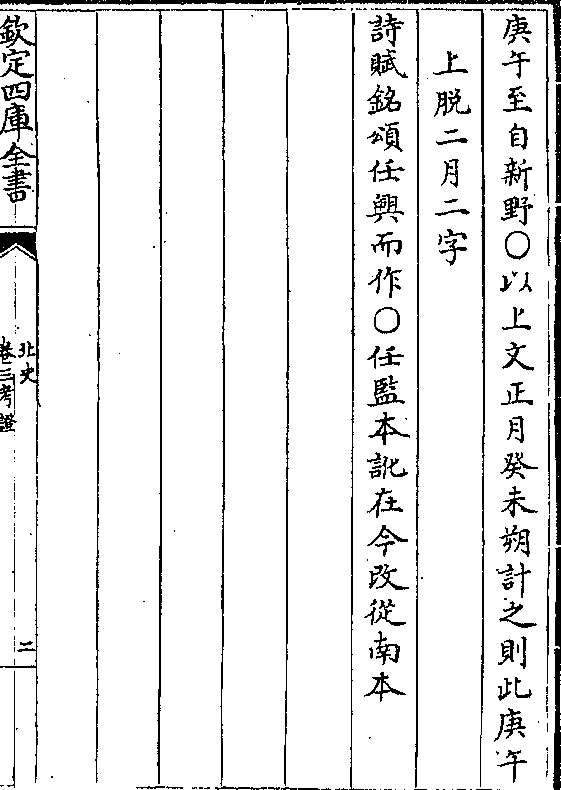 庚午至自新野○以上文正月癸未朔計之則此庚午
上脱二月二字
詩賦銘頌任興而作○任監本訛在今改從南本
欽定四庫全書
北史
卷三考證
二